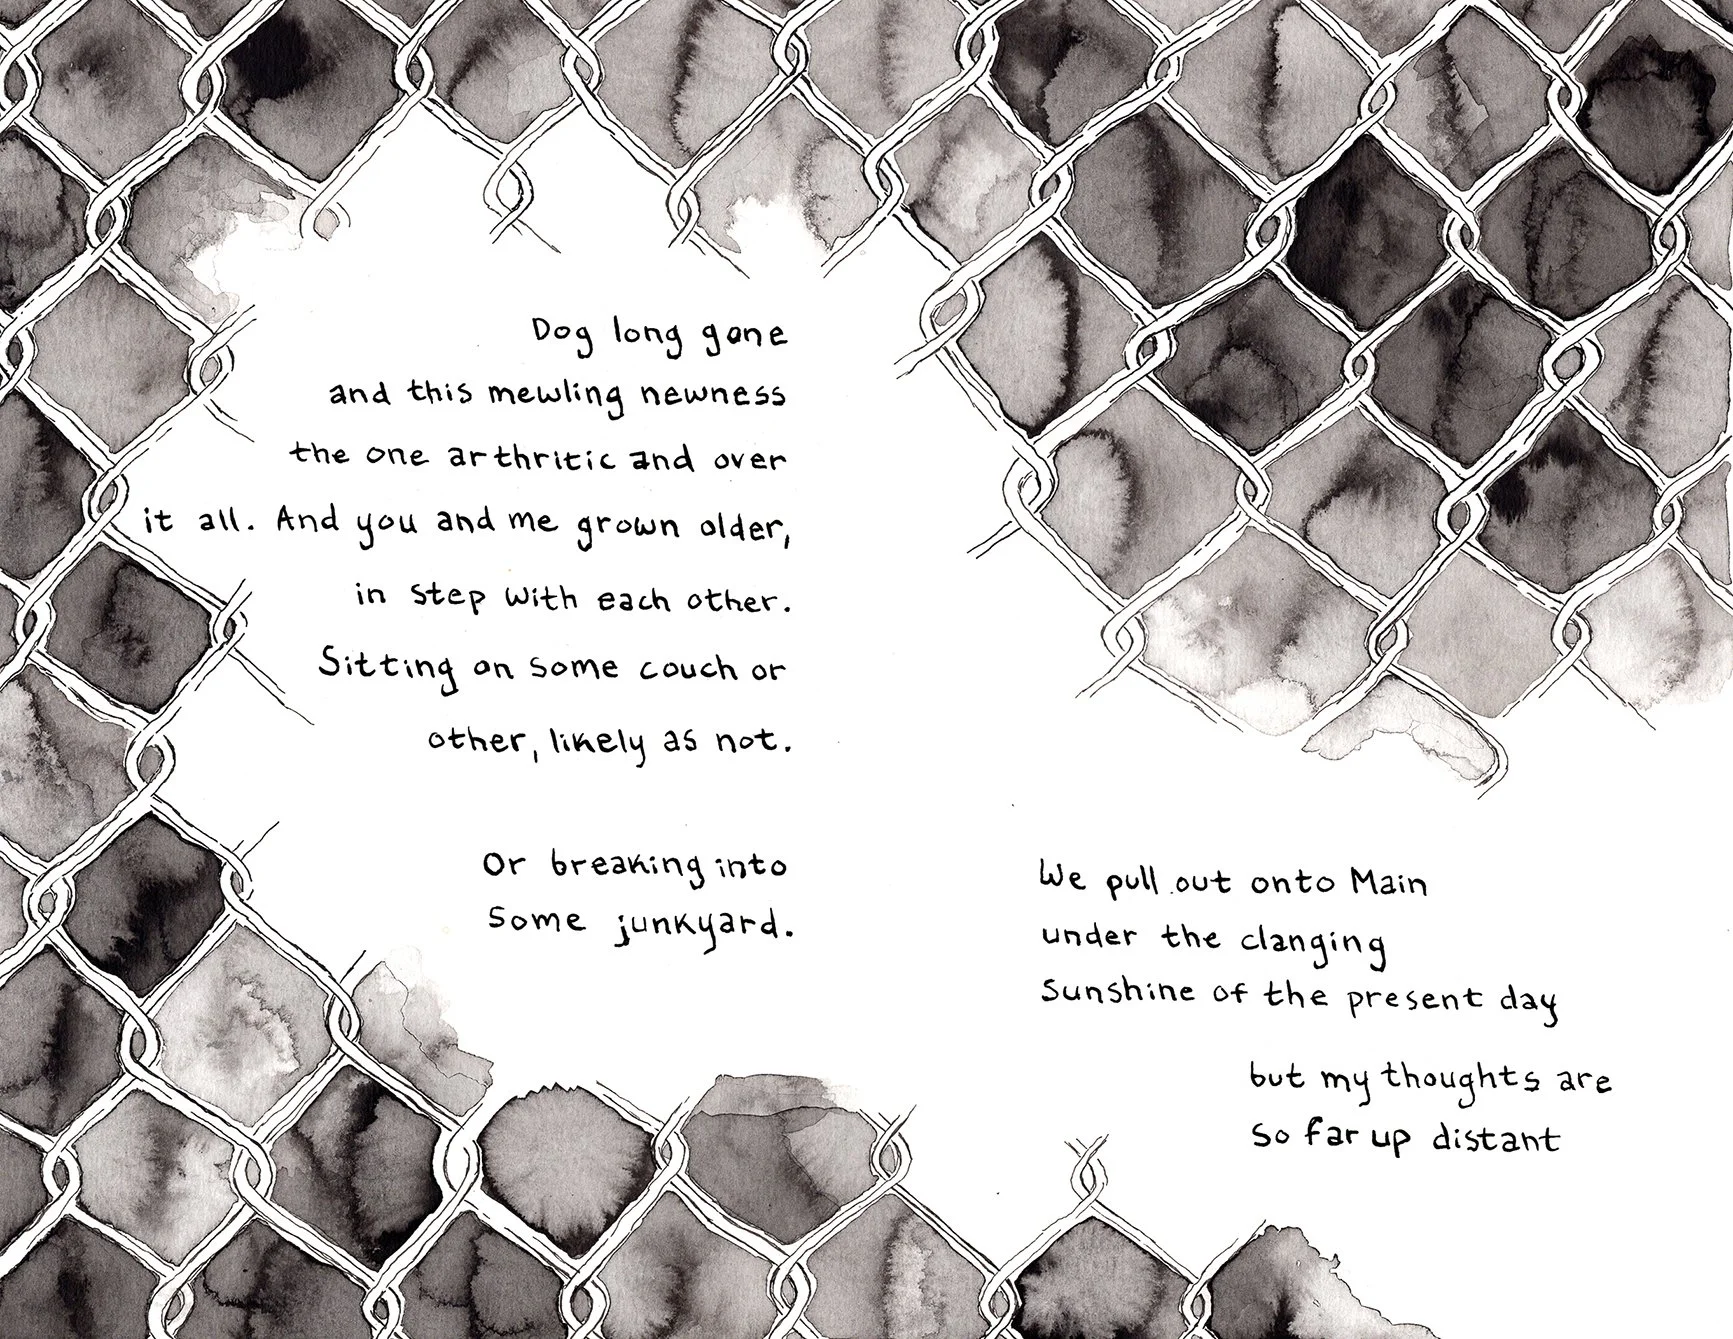 Dog long gone
and this mewling newness
the one arthritic and over
it all. And you and me grown older,
in step with each other.
Sitting on some couch or
other, likely as not.
Or breaking into
some junkyard.
We pull out onto Main
under the clanging
sunshine of the present day
but my thoughts are
so far up distant